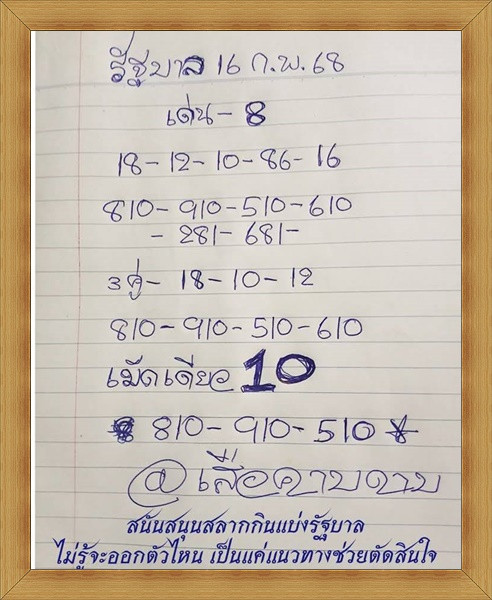 รัฐบาล 16 ก.พ. 68
เด่น - 8
18 - 12 - 10 - 86 - 16
810 - 910 - 510 - 610
- 281 - 681 -
3 คู่ - 18 - 10 - 12
810 - 910 - 510 - 610
เม็ดเดียว 10
810 - 910 - 510
@เสือคาบดาบ
สนันสนุนสลากกินแบ่งรัฐบาล
ไม่รู้จะออกตัวไหน เป็นแค่แนวทางช่วยตัดสินใจ